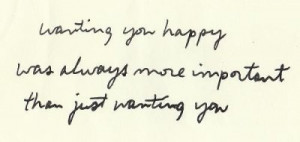 wanting you happy
was always more important
than just wanting you